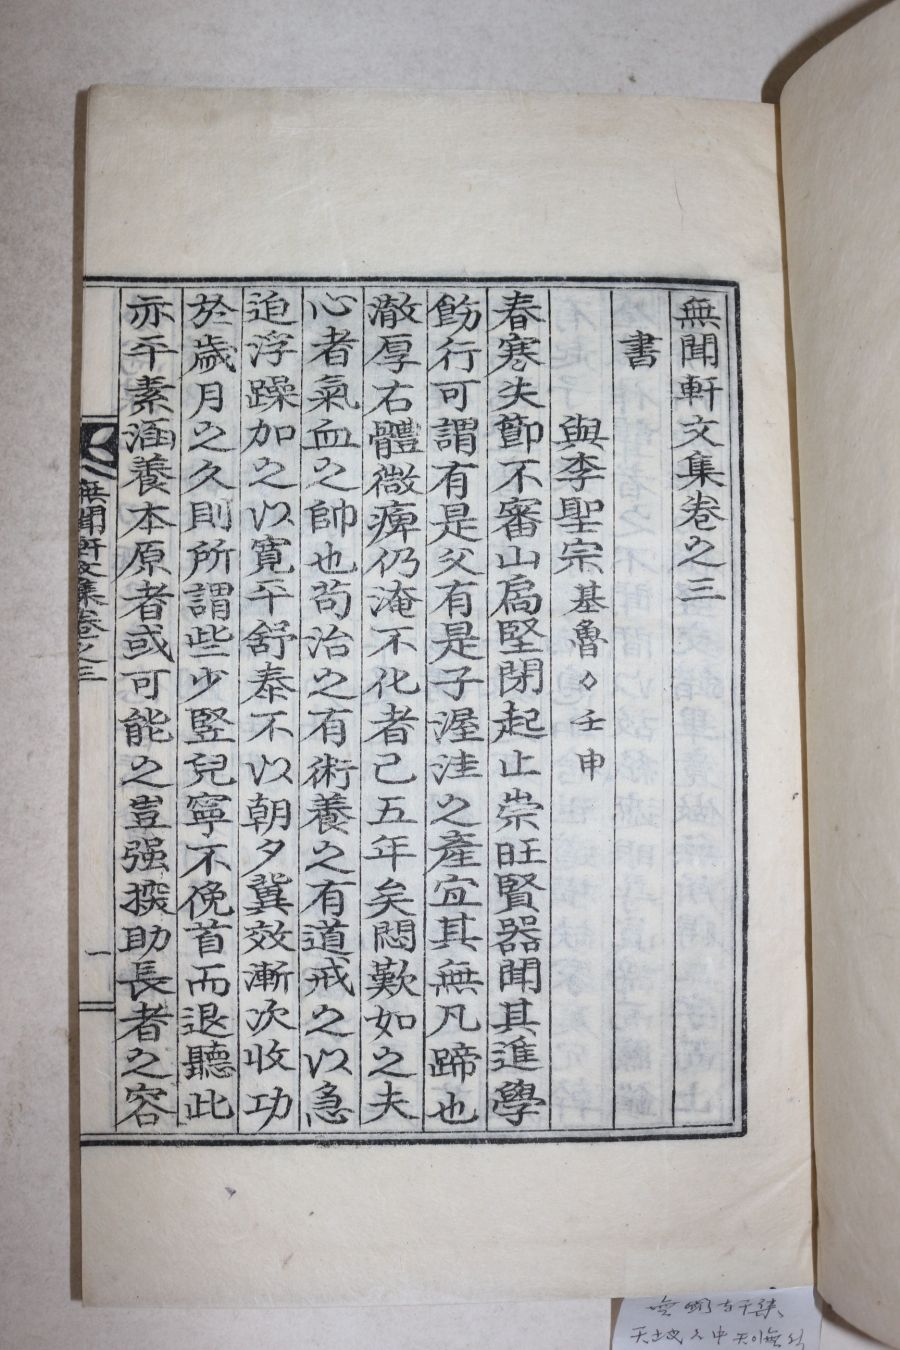 無聞軒文集卷之三
書
與李聖宗基魯◇壬申
春寒失節不審山扃堅閉起止崇旺賢器聞其進學
飭行可謂有是父有是子渥洼之產宜其無凡蹄也
澈厚右體微痺仍淹不化者已五年矣悶歎如之夫
心者氣血之帥也苟治之有術養之有道戒之以急
迫浮躁加之以寬平舒泰不以朝夕冀效漸次收功
於歲月之久則所謂些少竪兒寧不俛首而退聽此
亦平素涵養本原者或可能之豈强揠助長者之容
無聞軒文集卷之三
一